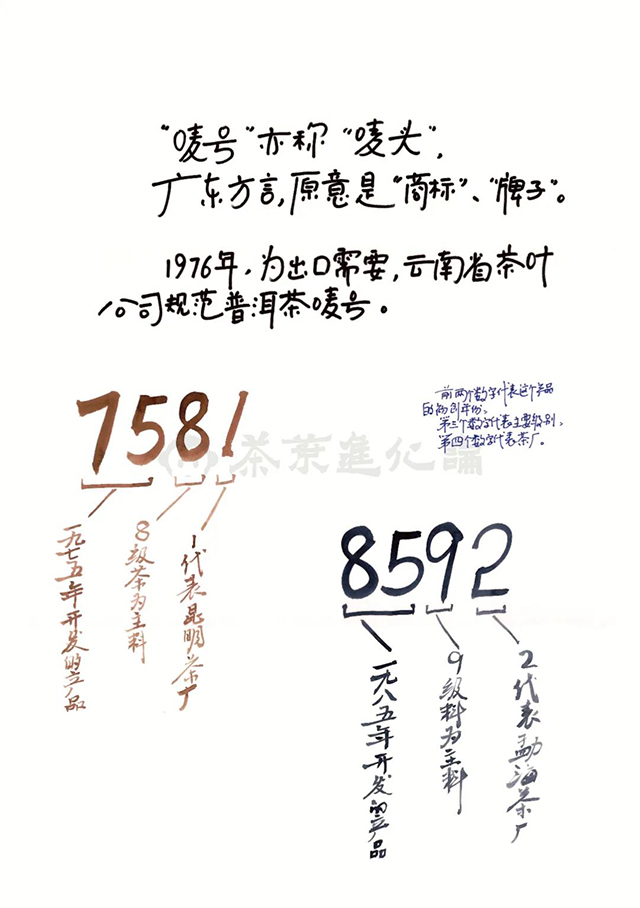 “唛号”亦称“唛头”，
广东方言，原意是“商标”、“牌子”。
1976年，为出口需要，云南省茶叶
公司规范普洱茶唛号。
7581
前两个数字代表这个产品
的初创年份，
第三个数字代表主要级别，
第四个数字代表茶厂。
茶葉進化論
一九七五年开发的产品
8级茶为主料
1代表昆明茶厂
8592
一九八五年开发的产品
9级料为主料
2代表勐海茶厂